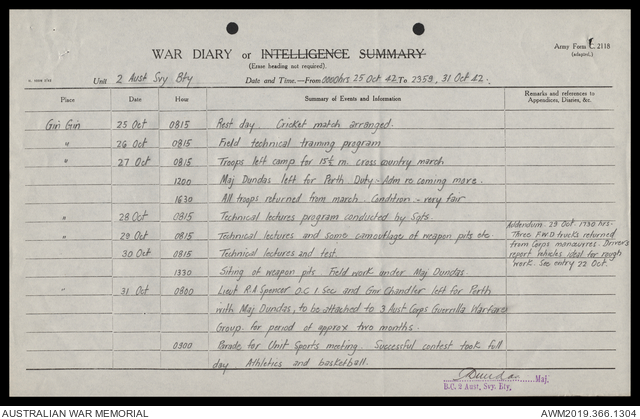 WAR DIARY or INTELLIGENCE SUMMARY
(Erase heading not required).
Army Form C. 2118
(adapted.)
Unit 2 Aust Svy Bty Date and Time.—From 0000hrs 25 Oct 42 To 2359, 31 Oct 42.
Place Date Hour Summary of Events and Information Remarks and references to Appendices, Diaries, &c.
Gin Gin 25 Oct 0815 Rest day. Cricket match arranged.
" 26 Oct 0815 Field technical training program
" 27 Oct 0815 Troops left camp for 15½ m. cross country march
1200 Maj Dundas left for Perth Duty - Adm re coming move.
1630 All troops returned from march. Condition - very fair
" 28 Oct 0815 Technical lectures program conducted by Sgts.
" 29 Oct 0815 Technical lectures and some camouflage of weapon pits etc
30 Oct 0815 Technical lectures and test.
1330 Siting of weapon pits. Field work under Maj Dundas
" 31 Oct 0800 Lieut R.A Spencer O.C 1 Sec and Gnr Chandler left for Perth
with Maj Dundas, to be attached to 3 Aust Corps Guerrilla Warfare
Group. for period of approx two months.
0900 Parade for Unit Sports meeting. Successful contest took full
day. Athletics and basketball.
Addendum. 29 Oct. 1730 hrs.
Three F.W.D trucks returned
from Corps manouvres. Drivers
report vehicles ideal for rough
work. See entry 22 Oct.
Dundas Maj.
B.C. 2 Aust. Svy. Bty.
AUSTRALIAN WAR MEMORIAL AWM2019.366.1304